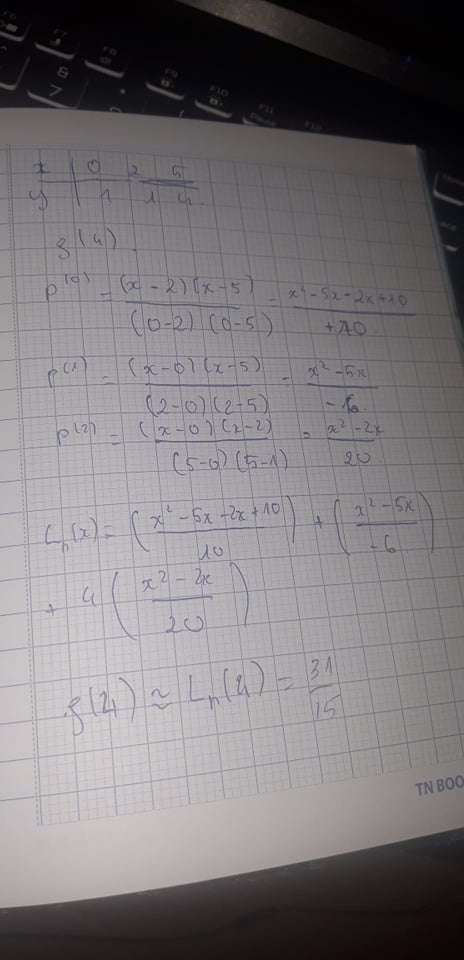 F6 F7 F8 F9 F10 F11 F12
8
7
x | 0 2 5
y | 1 1 4
f(4).
p^(0) = (x-2)(x-5) / (0-2)(0-5) = x²-5x-2x+10 / +10
p^(1) = (x-0)(x-5) / (2-0)(2-5) = x²-5x / -6
p^(2) = (x-0)(x-2) / (5-0)(5-1) = x²-2x / 20
Ln(x) = (x²-5x+2x+10 / 10) + (x²-5x / -6)
+ 4 (x²-2x / 20)
f(4) ≃ Ln(4) = 31/15
TN BOO